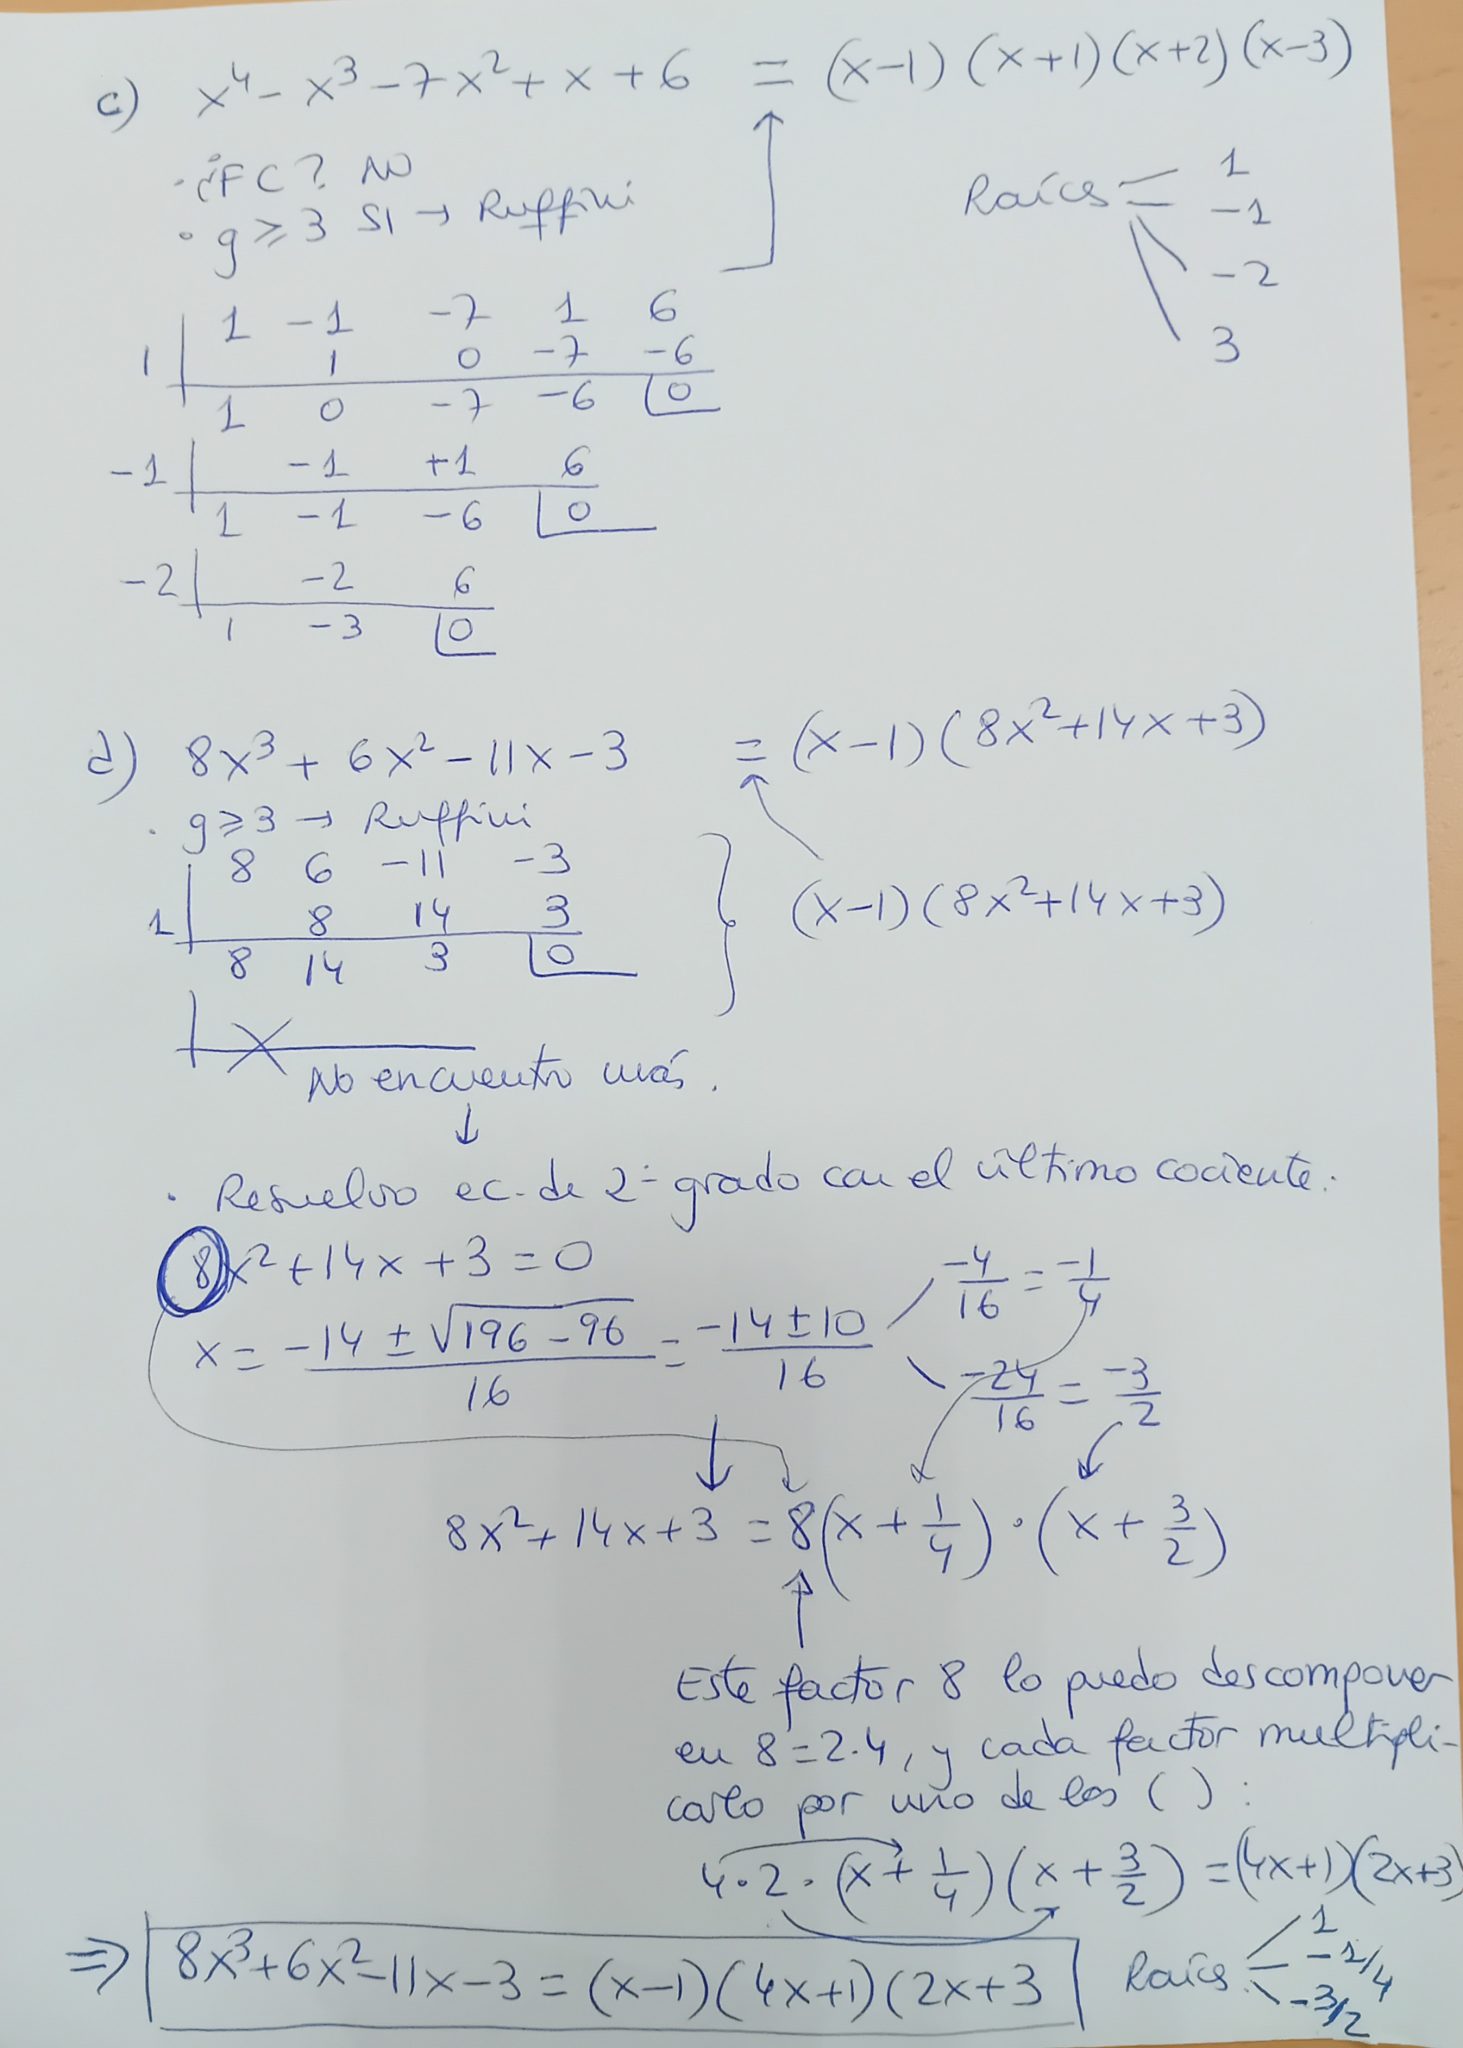 c) x⁴ - x³ - 7x² + x + 6 = (x-1) (x+1) (x+2) (x-3)
· ¿FC? NO
· g ≥ 3 SI → Ruffini
Raíces 1
-1
-2
3
1 -1 -7 1 6
1 1 0 -7 -6
1 0 -7 -6 0
-1 -1 +1 6
1 -1 -6 0
-2 -2 6
1 -3 0
d) 8x³ + 6x² - 11x - 3 = (x-1) (8x²+14x+3)
· g ≥ 3 → Ruffini
8 6 -11 -3
1 8 14 3
8 14 3 0
(x-1) (8x²+14x+3)
No encuentro más.
↓
· Resuelvo ec. de 2º grado con el último cociente:
8x² + 14x + 3 = 0
x = (-14 ± √(196 - 96))/16 = (-14 ± 10)/16
-4/16 = -1/4
-24/16 = -3/2
8x² + 14x + 3 = 8(x + 1/4) · (x + 3/2)
Este factor 8 lo puedo descomponer
en 8 = 2·4, y cada factor multipli-
carlo por uno de los ( ) :
4·2·(x + 1/4) (x + 3/2) = (4x+1)(2x+3)
⇒ 8x³+6x²-11x-3 = (x-1) (4x+1) (2x+3
Raíces 1
-1/4
-3/2